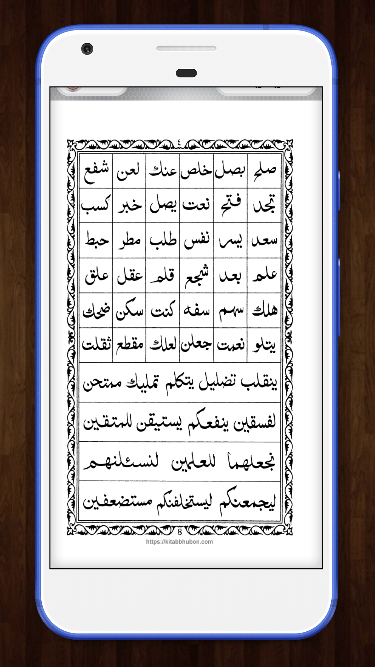 صلح بصل خلص عنك لعن شفع
تجد فتح نعت يصل خبر كسب
سعد يسر نفس طلب مطر حبط
علم بعد شجع قلم عقل علق
هلك سهم سفه كنت سكن ضحك
يتلو نعمت جعلن لعلك مقطع ثقلت
ينقلب تضليل يتكلم تمليك ممتحن
لفسقين ينفعكم يستيقن للمتقين
نجعلهما للعلمين لنسئلنهم
ليجمعنكم ليستخلفنكم مستضعفين
8
https://kitabbhubon.com